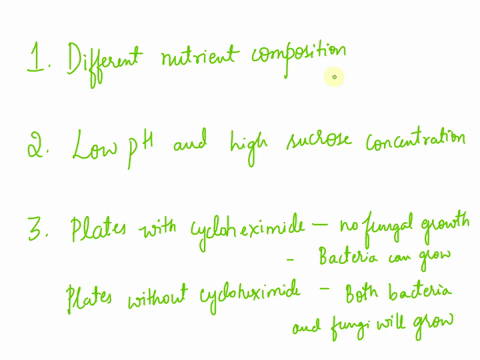 1. Different nutrient composition
2. Low pH and high sucrose concentration
3. Plates with cycloheximide — no fungal growth
- Bacteria can grow
Plates without cycloheximide - Both bacteria
and fungi will grow